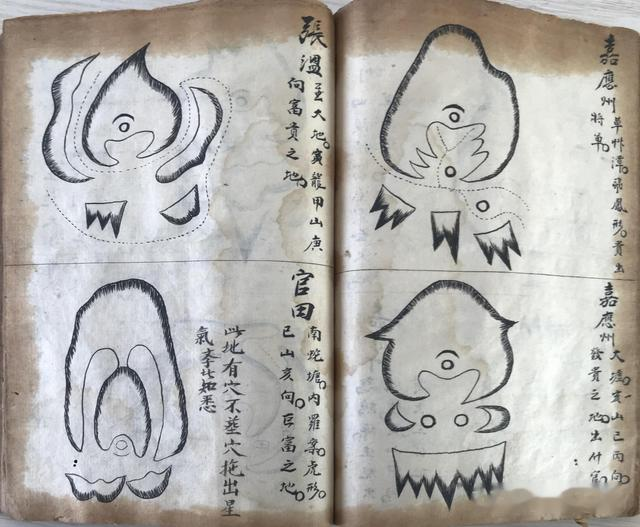 嘉應州
草州潭飛鳳形貴出
特尊
嘉應州
大塘亥山巳丙向
發貴之地出什官
張溫
至大地寅龍甲山庚
向富貴之地
官田
南蛇塘內羅案虎形
巳山亥向巨富之地
此地有穴不葬穴拖出星
氣李此知悉